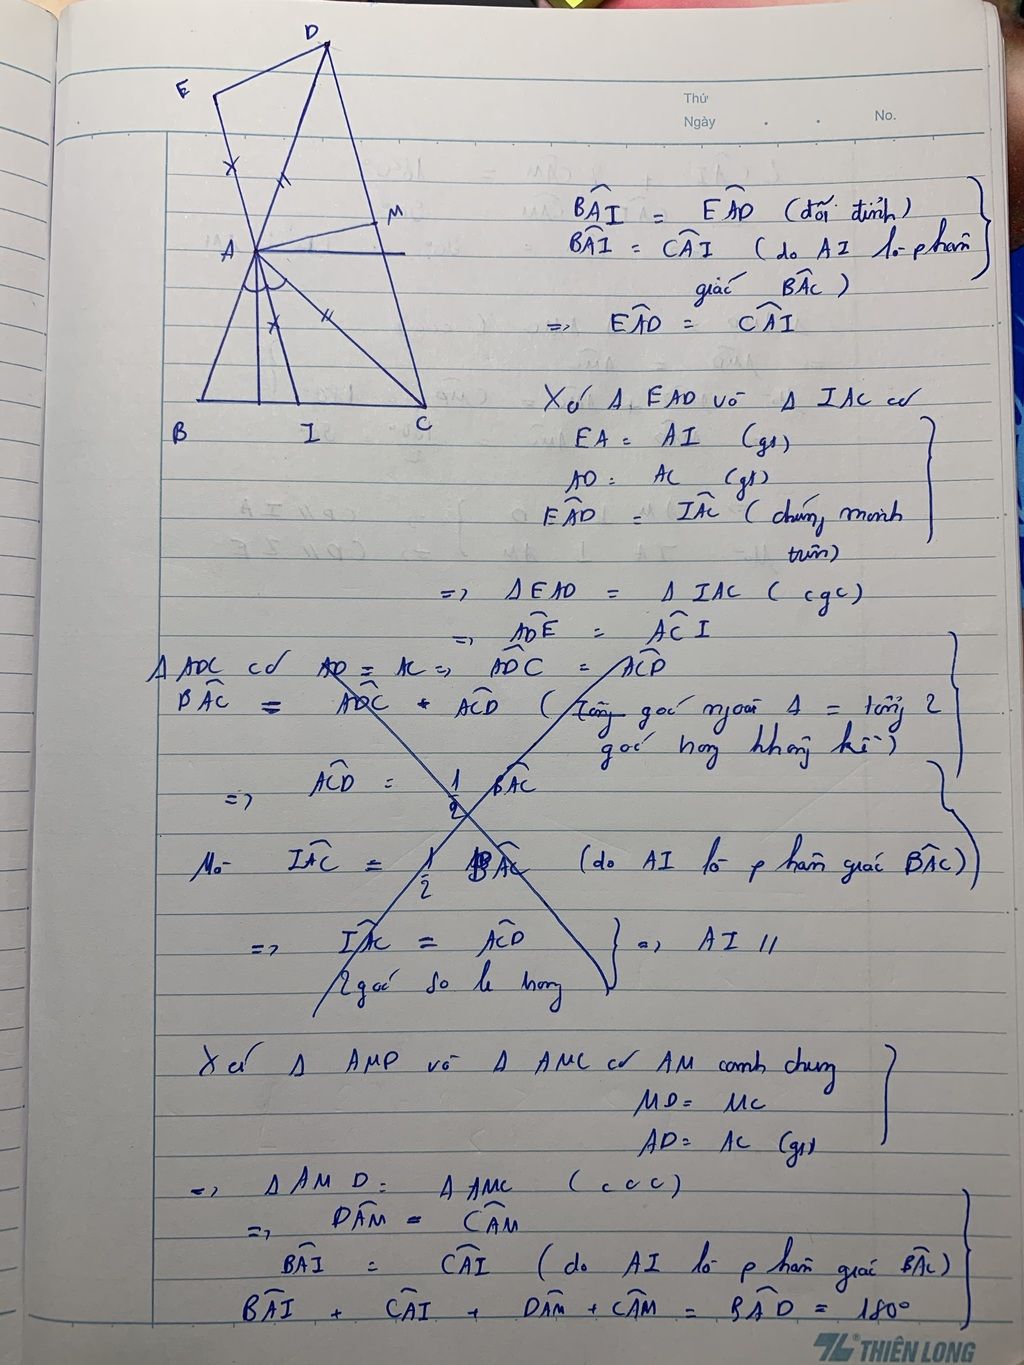 D
E
Thứ
Ngày . . No.
M
A
B I C
BÂI = EÂD (đối đỉnh)
BÂI = CÂI (do AI là phân
giác BÂC)
=> EÂD = CÂI
Xét Δ EAD và Δ IAC có
EA = AI (gt)
AD = AC (gt)
EÂD = IÂC (chứng minh
trên)
=> Δ EAD = Δ IAC (cgc)
=> AD̂E = AĈI
Δ ADC có AD = AC => AD̂C = AĈD
BÂC = AD̂C + AĈD (Tổng góc ngoài Δ = tổng 2
góc trong không kề)
=> AĈD = 1/2 BÂC
Mà IÂC = 1/2 BÂC (do AI là phân giác BÂC)
=> IÂC = AĈD } => AI //
2 góc so le trong
Xét Δ AMD và Δ AMC có AM cạnh chung
MD = MC
AD = AC (gt)
=> Δ AMD = Δ AMC (ccc)
=> DÂM = CÂM
BÂI = CÂI (do AI là phân giác BÂC)
BÂI + CÂI + DÂM + CÂM = BÂD = 180°
THIÊN LONG